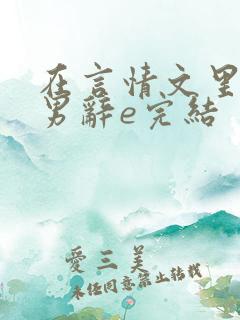 在言情文里
男辭e完結
愛三美
未经同意禁止转载